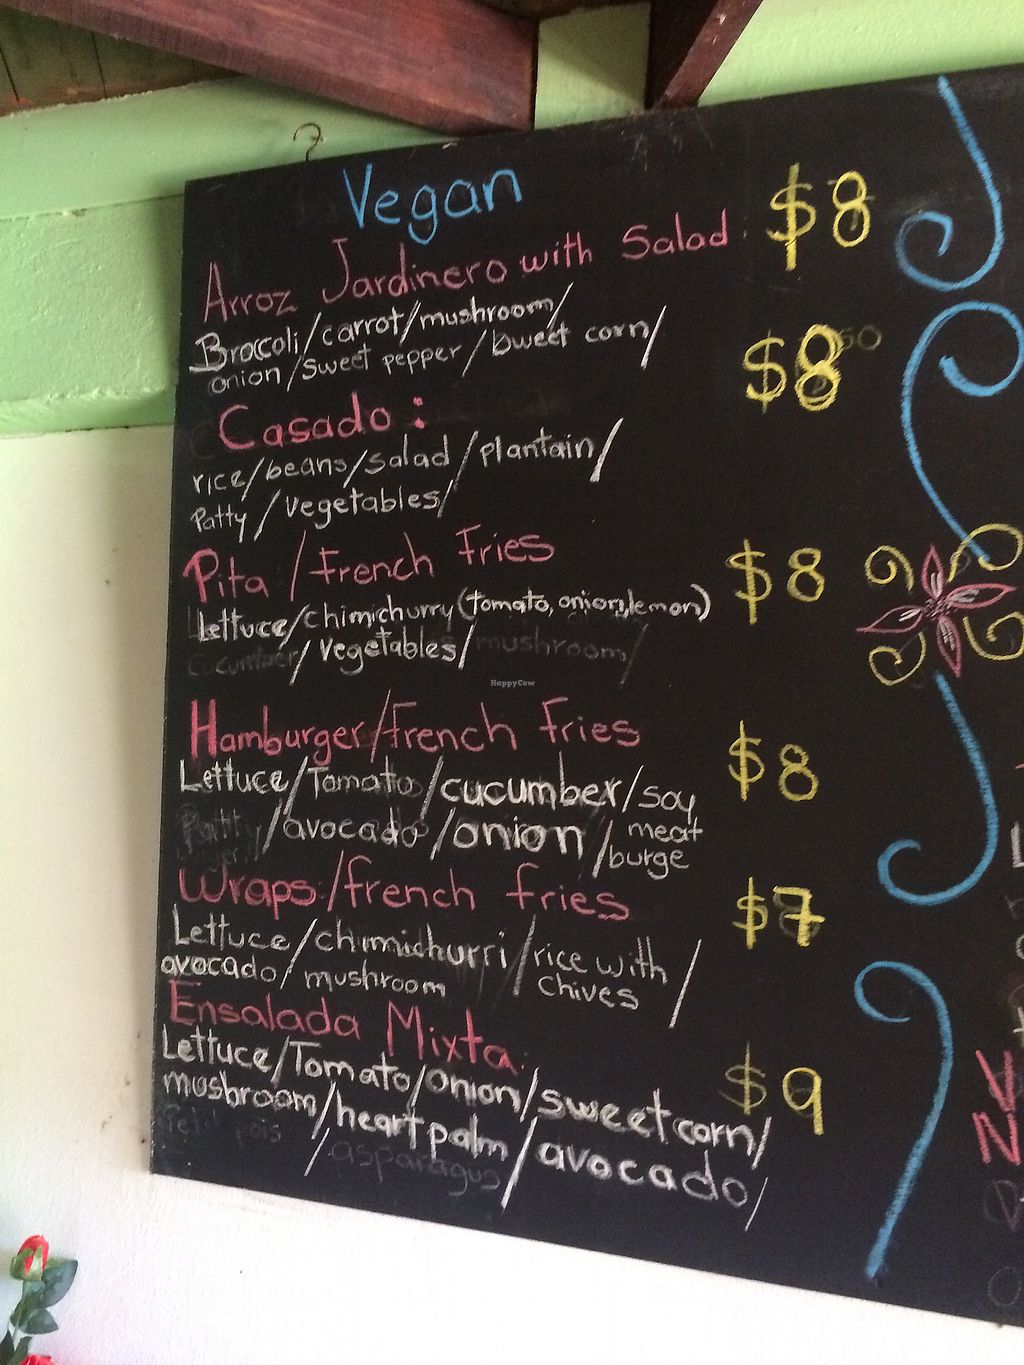 Vegan
Arroz Jardinero with Salad. $8
Broccoli/carrot/mushroom/
onion/sweet pepper/sweet corn/
$8
Casado:
rice/beans/salad/plantain/
Patty/vegetables/
Pita/French Fries $8
Lettuce/chimichurry(tomato, onion, lemon)
Cucumber/vegetables/mushroom/
HappyCow
Hamburger/French Fries $8
Lettuce/Tomato/cucumber/soy
Patty/avocado/onion/meat
burge
Wraps:/french fries $7
Lettuce/chimichurri/rice with
chives/
avocado/mushroom
Ensalada Mixta: $9
Lettuce/Tomato/onion/sweet corn/
mushroom/heart palm/avocado/
Petit pois/asparagus